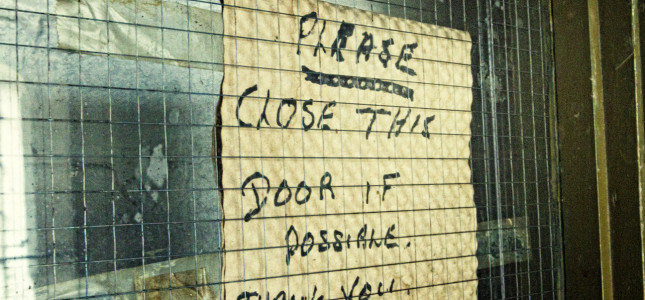 PLEASE
CLOSE THIS
DOOR IF
POSSIBLE.
THANK YOU.